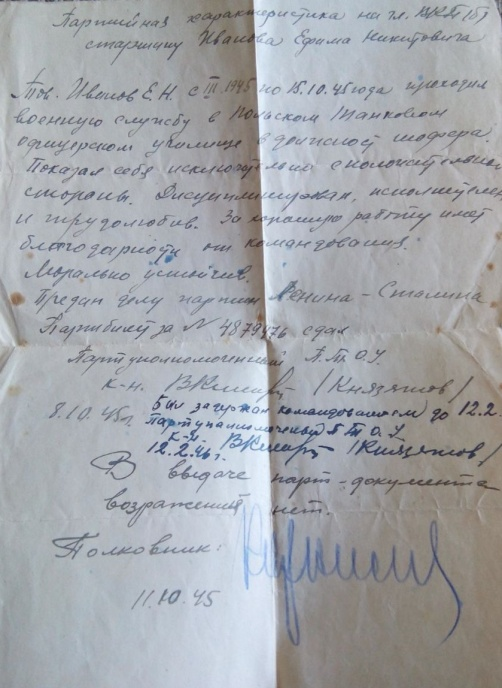 Партийная характеристика на чл. ВКП(б)
старшину Иванова Ефима Никитовича
Тов. Иванов Е.Н. с III.1945 по 15.10.45 года проходил
военную службу в Польском Танковом
офицерском училище в должност шофера.
Показал себя исключительно с положительной
стороны. Дисциплинирован, исполнителен
и трудолюбив. За хорошую работу имеет
благодарности от командования.
Морально устойчив.
Предан делу партии Ленина - Сталина
Партбилет за № 4879476 сдал
Партуполномоченный П.Т.О.У.
к-н. /Князятов/
8.10.45г. Был задержан командованием до 12.2.
Партуполномоченный П Т О У
к-н. /Князятов/
12.2.46г.
В выдаче парт-документа
возражений нет.
Полковник:
11.10.45